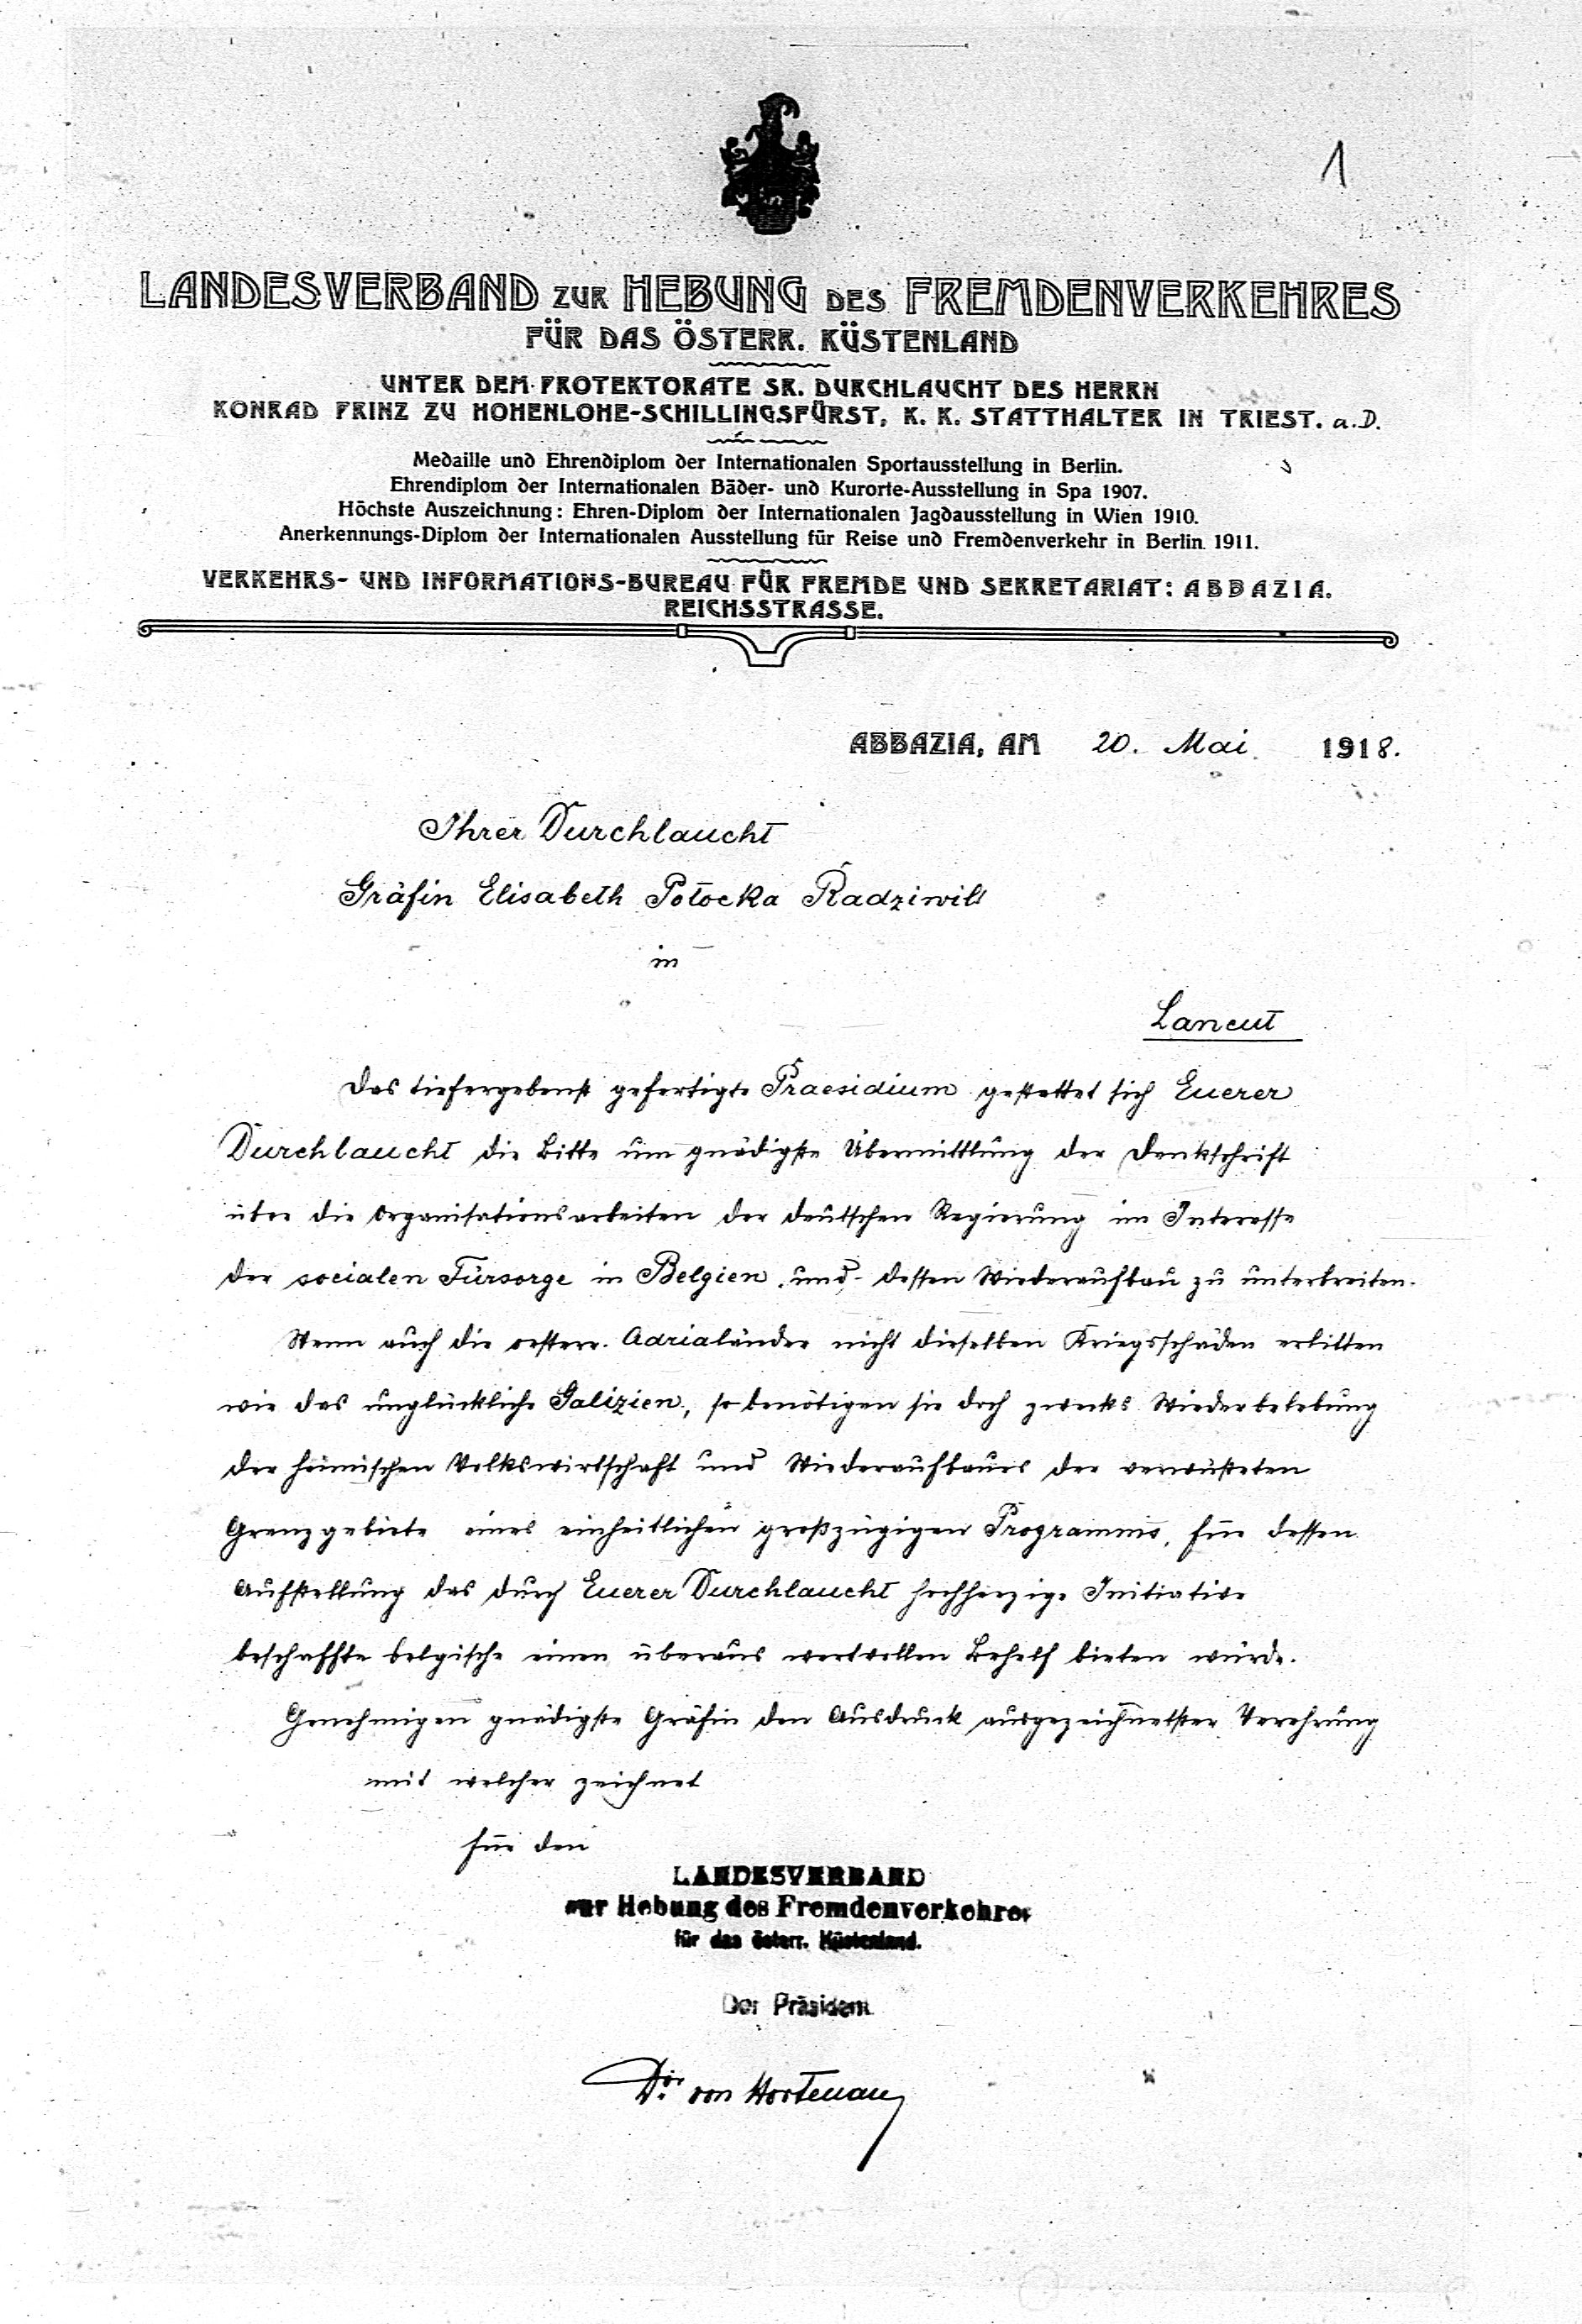 1
LANDESVERBAND ZUR HEBUNG DES FREMDENVERKEHRES
FÜR DAS ÖSTERR. KÜSTENLAND
UNTER DEM PROTEKTORATE SR. DURCHLAUCHT DES HERRN
KONRAD PRINZ ZU HOHENLOHE-SCHILLINGSFÜRST, K. K. STATTHALTER IN TRIEST. a.D.
Medaille und Ehrendiplom der Internationalen Sportausstellung in Berlin.
Ehrendiplom der Internationalen Bäder- und Kurorte-Ausstellung in Spa 1907.
Höchste Auszeichnung: Ehren-Diplom der Internationalen Jagdausstellung in Wien 1910.
Anerkennungs-Diplom der Internationalen Ausstellung für Reise und Fremdenverkehr in Berlin 1911.
VERKEHRS- UND INFORMATIONS-BUREAU FÜR FREMDE UND SEKRETARIAT: ABBAZIA.
REICHSSTRASSE.
ABBAZIA, AM 20. Mai 1918.
Ihrer Durchlaucht
Gräfin Elisabeth Potocka Radziwill
in
Lancut
Das tiefergebenst gefertigte Praesidium gestattet sich Euerer
Durchlaucht die Bitte um gnädigste Übermittlung der Denkschrift
über die Organisationsarbeiten der deutschen Regierung im Interesse
der socialen Fürsorge in Belgien und dessen Wiederaufbau zu unterbreiten.
Wenn auch die oesterr. Adrialänder nicht dieselben Kriegsschäden erlitten
wie das unglückliche Galizien, so benötigen sie doch zwecks Wiederbelebung
der heimischen Volkswirtschaft und Wiederaufbaues der verwüsteten
Grenzgebiete eines einheitlichen großzügigen Programms, für dessen
Aufstellung das durch Euerer Durchlaucht hochherzige Initiative
beschaffte belgische einen überaus wertvollen Behelf bieten würde.
Genehmigen gnädigste Gräfin den Ausdruck ausgezeichnetster Verehrung
mit welcher zeichnet
für den
LANDESVERBAND
zur Hebung des Fremdenverkehres
für das österr. Küstenland.
Der Präsident
Dr. von Hortenau